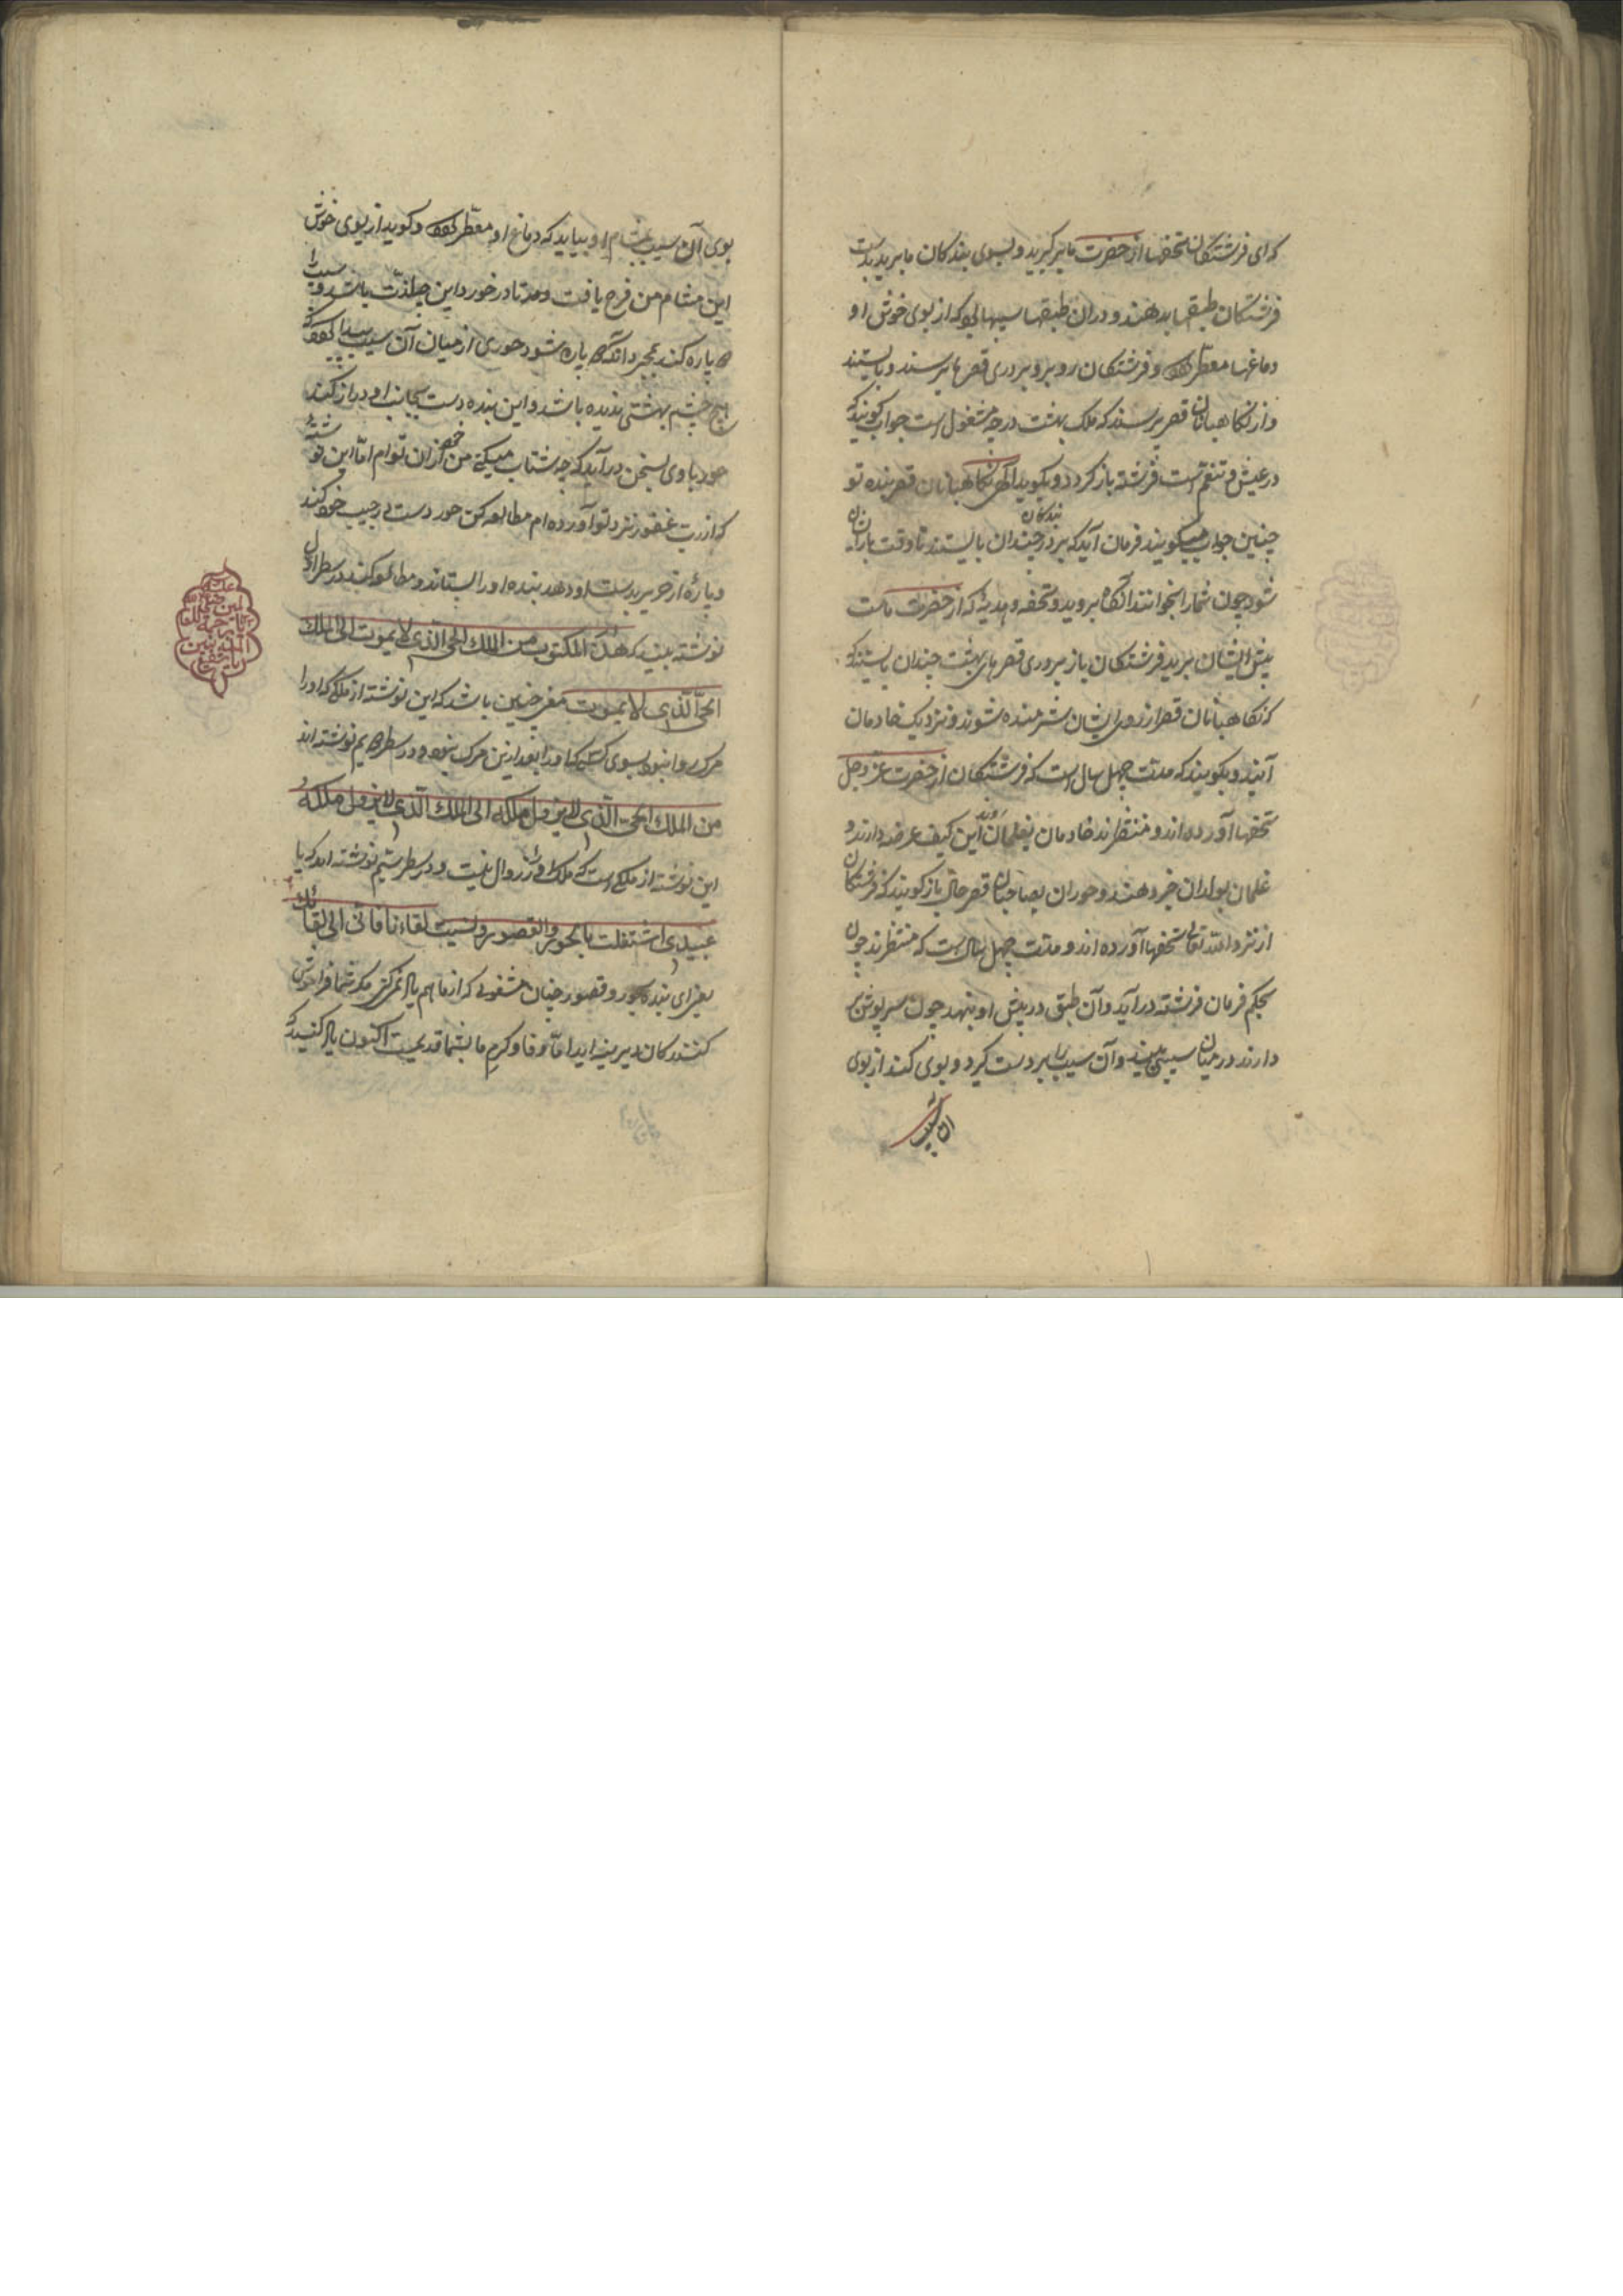 که ای فرشتگان تحفها از حضرت ما بر گیرید و بسوی بندگان ما برید بدست
فرشتگان طبقها بدهند و در آن طبقها سیبهای که از بوی خوش او
دماغها معطر و فرشتگان روبرو بر دری قصرها برسند و بایستند
و از نگاهبانان قصر پرسند که ملک بهشت در چه مشغول است جواب گویند که
در عیش و تنعم است فرشته باز گردد و بگوید الهی نگاهبانان قصر بنده تو
چنین جواب میگویند فرمان آید که بر در بندگان چندان بایستند تا وقت باز آن
شود چون شما را بخوانند آنگاه بروید و تحفه و هدیه که از حضرت ماست
پیش ایشان برید فرشتگان باز بر دری قصرهای بهشت چندان بایستند که
که نگاهبانان قصر از روی ایشان شرمنده شوند و نزدیک خادمان
آیند و بگویند که مدت چهل سال است که فرشتگان از حضرت عز و جل
تحفها آورده اند و منتظرند خادمان بغلمان روند این کیف عرضه دارند و
غلمان بولدان خبر دهند و حوران بصاحبان قصر حال باز گویند که فرشتگان
از نزد الله تعالی تحفها آورده اند و مدت چهل سال است که منتظرند چون
بحکم فرمان فرشته در آید و آن طبق در پیش او بنهد چون سرپوش بر
دارند در میان سیبی بیند و آن سیب را بر دست گیرد و بوی کند از بوی
آن سیب
بوی آن سیب بمشام او بیاید که دماغ او معطر و گوید از بوی خوش
این مشام من فرح یافت و مدتا در خورد این چه لذت باشد و سیب را
پاره کند بمجرد آنکه پاره شود حوری از میان آن سیب پیدا که
هیچ چشم بهشتی ندیده باشد و این بنده دست بجانب او دراز کند
حور با وی بسخن در آید که چه شتاب میکنی من از آن توام اما این نوشته
که از رب غفور نزد تو آورده ام مطالعه کن حور دست در جیب خود کند
و پارهٔ از حریر بدست او دهد بنده او را بستاند و مطالعه کند در سطر اول
نوشته بیند که هذا المکتوب من الملک الحی الذی لا یموت الی الملک
الحی الذی لا یموت معنی چنین باشد که این نوشته از ملکی که او را
مرگ روا نبود بسوی کسی که او را بعد ازین مرگ نبود و در سطر دویم نوشته اند
من الملک الحی الذی لا یزول ملکه الی الملک الذی لا یزول ملکه
این نوشته از ملکی است که ملک او را زوال نیست و در سطر سیم نوشته اند که یا
عبیدی اشتغلت بالحور و القصور و نسیت لقاءنا فانی الی لقائک
یعنی ای بنده بحور و قصور چنان مشغولی که از ما هم یاد نمیکنی مگر شما فراموش
کنندگان دیرینه اید اما وفا و کرم ما بشما قدیمیست اکنون یاد کنید که